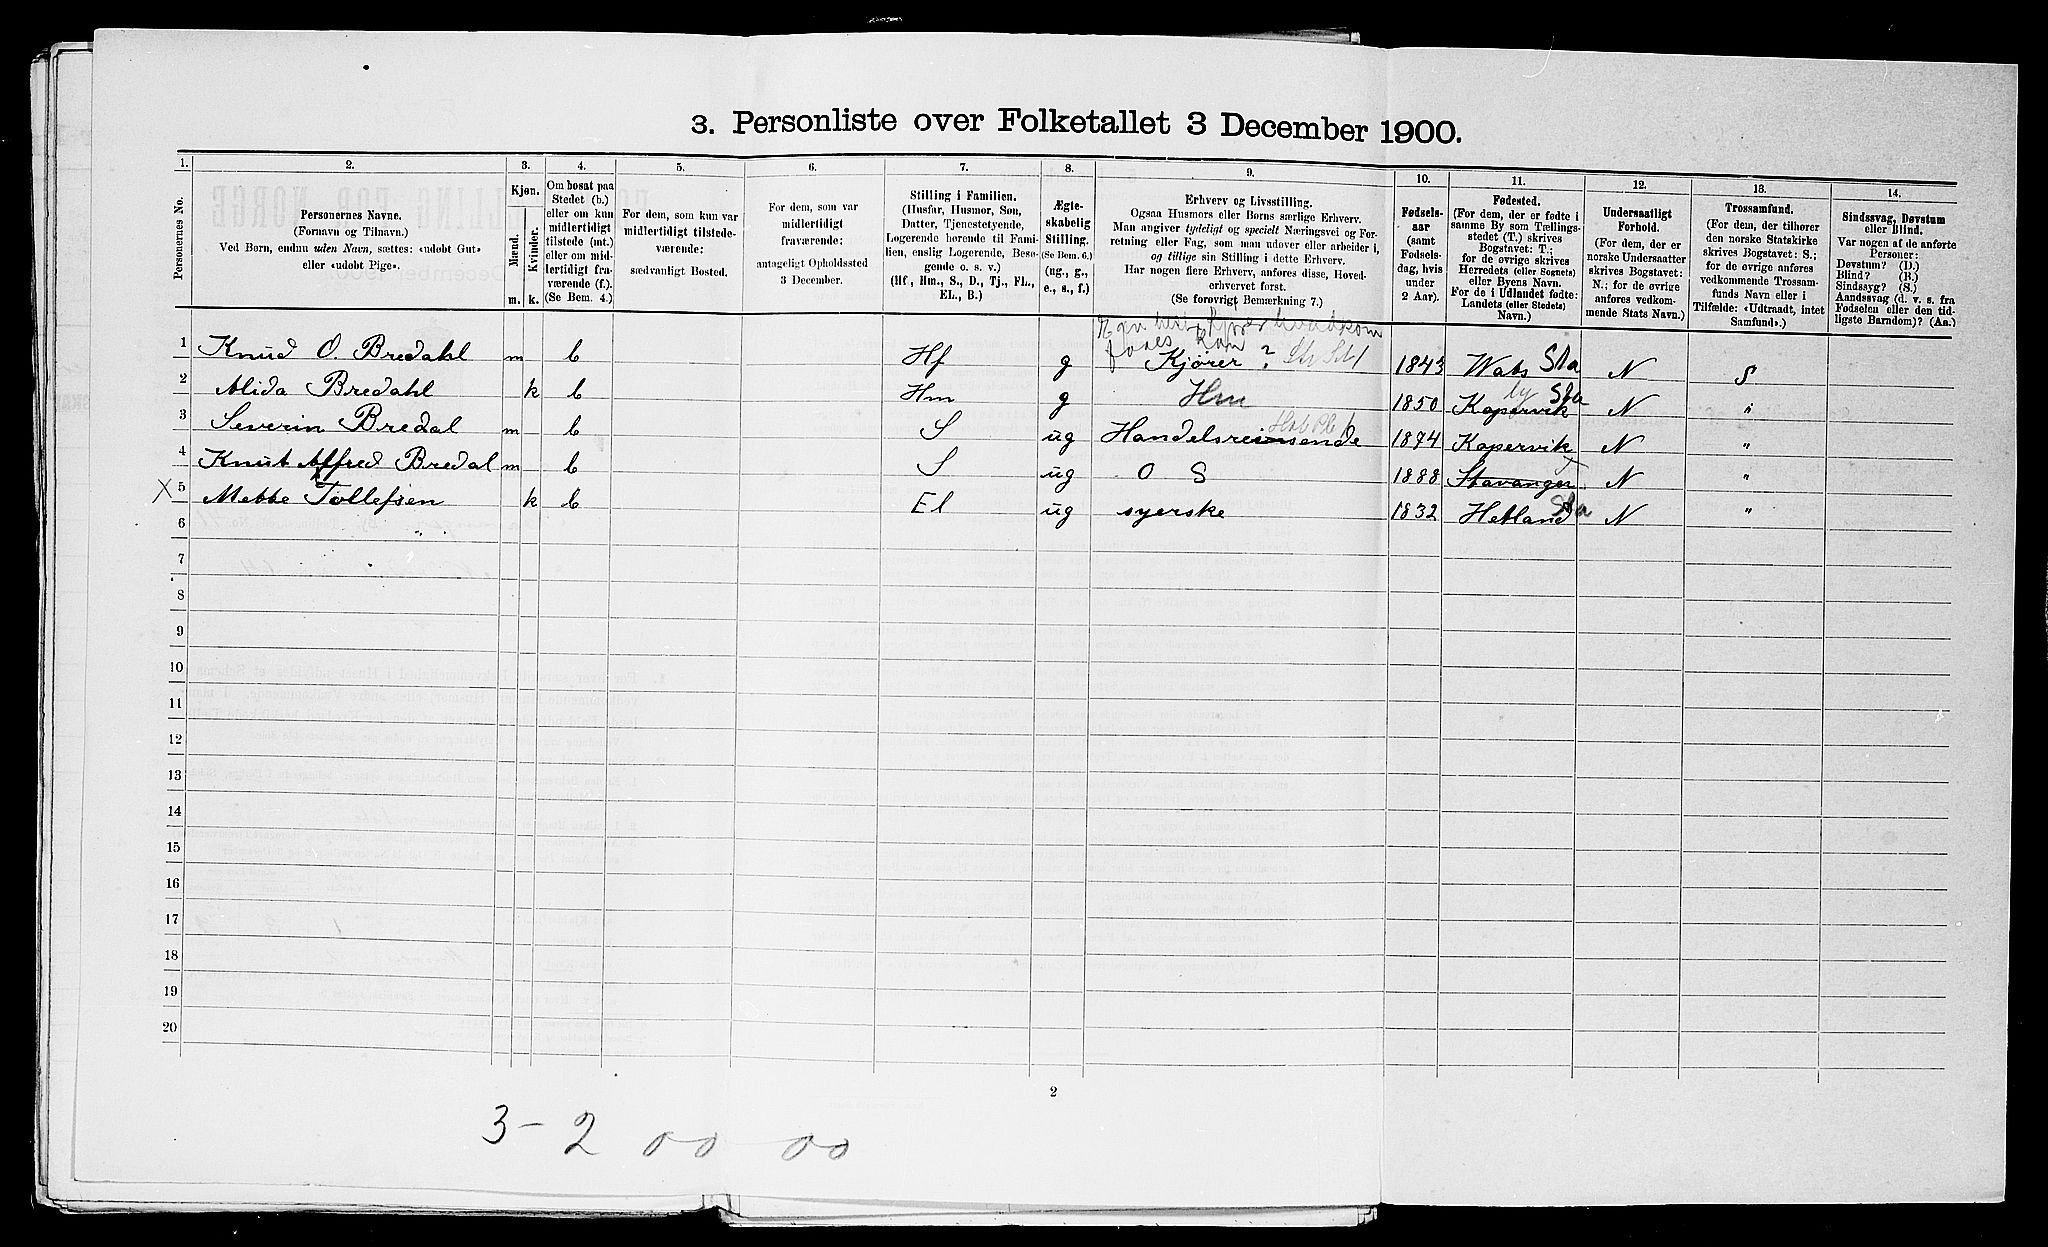 3. Personliste over Folketallet 3 December 1900.
1. 2. 3. 4. 5. 6. 7. 8. 9. 10. 11. 12. 13. 14.
Personernes No.
Personernes Navne.
(Fornavn og Tilnavn.)
Ved Børn, endnu uden Navn, sættes: «udøbt Gut»
eller «udøbt Pige».
Kjøn.
Mænd. Kvinder.
m. k.
Om bosat paa
Stedet (b.)
eller om kun
midlertidigt
tilstede (mt.)
eller om mid-
lertidigt fra-
værende (f.).
(Se Bem. 4.)
For dem, som kun var
midlertidigt tilstede-
værende:
sædvanligt Bosted.
For dem, som var
midlertidigt
fraværende:
antageligt Opholdssted
3 December.
Stilling i Familien.
(Husfar, Husmor, Søn,
Datter, Tjenestetyende,
Logerende hørende til Fami-
lien, enslig Logerende, Besø-
gende o. s. v.)
(Hf., Hm., S., D., Tj., FL.,
EL., B.)
Ægte-
skabelig
Stilling.
(Se Bem. 6.)
(ug., g.,
e., s., f.)
Erhverv og Livsstilling.
Ogsaa Husmors eller Børns særlige Erhverv.
Man angiver tydeligt og specielt Næringsvei og For-
retning eller Fag, som man udøver eller arbeider i,
og tillige sin Stilling i dette Erhverv.
Har nogen flere Erhverv, anføres disse, Hoved-
erhvervet først.
(Se forøvrigt Bemærkning 7.)
Fødsels-
aar
(samt
Fødsels-
dag, hvis
under
2 Aar).
Fødested.
(For dem, der er fødte i
samme By som Tællings-
stedet (T.) skrives
Bogstavet: T.;
for de øvrige skrives
Herredets (eller Sognets)
eller Byens Navn.
For de i Udlandet fødte:
Landets (eller Stedets)
Navn.)
Undersaatligt
Forhold.
(For dem, der er
norske Undersaatter
skrives Bogstavet:
N.; for de øvrige
anføres vedkom-
mende Stats Navn.)
Trossamfund.
(For dem, der tilhører
den norske Statskirke
skrives Bogstavet: S.;
for de øvrige anføres
vedkommende Trossam-
funds Navn eller i
Tilfælde: «Udtraadt, intet
Samfund».)
Sindssvag, Døvstum
eller Blind.
Var nogen af de anførte
Personer:
Døvstum? (D.)
Blind? (B.)
Sindssyg? (S.)
Aandssvag (d. v. s. fra
Fødselen eller den tid-
ligste Barndom)? (Aa.)
1 Knud O. Bredahl m b Hf g Kjører ? 1843 Wats Sta N S
2 Alida Bredahl k b Hm g Hm 1850 Kopervik by Sta N "
3 Severin Bredal m b S ug Handelsreisende 1874 Kopervik N "
4 Knut Alfred Bredal m b S ug O S 1888 Stavanger T N "
X 5 Mette Tollefsen k b El ug syerske 1832 Hetland Sta N "
6
7
8
9
10
11
12
13
14
15
16
17
18
19
20
2
3 - 2 00 00